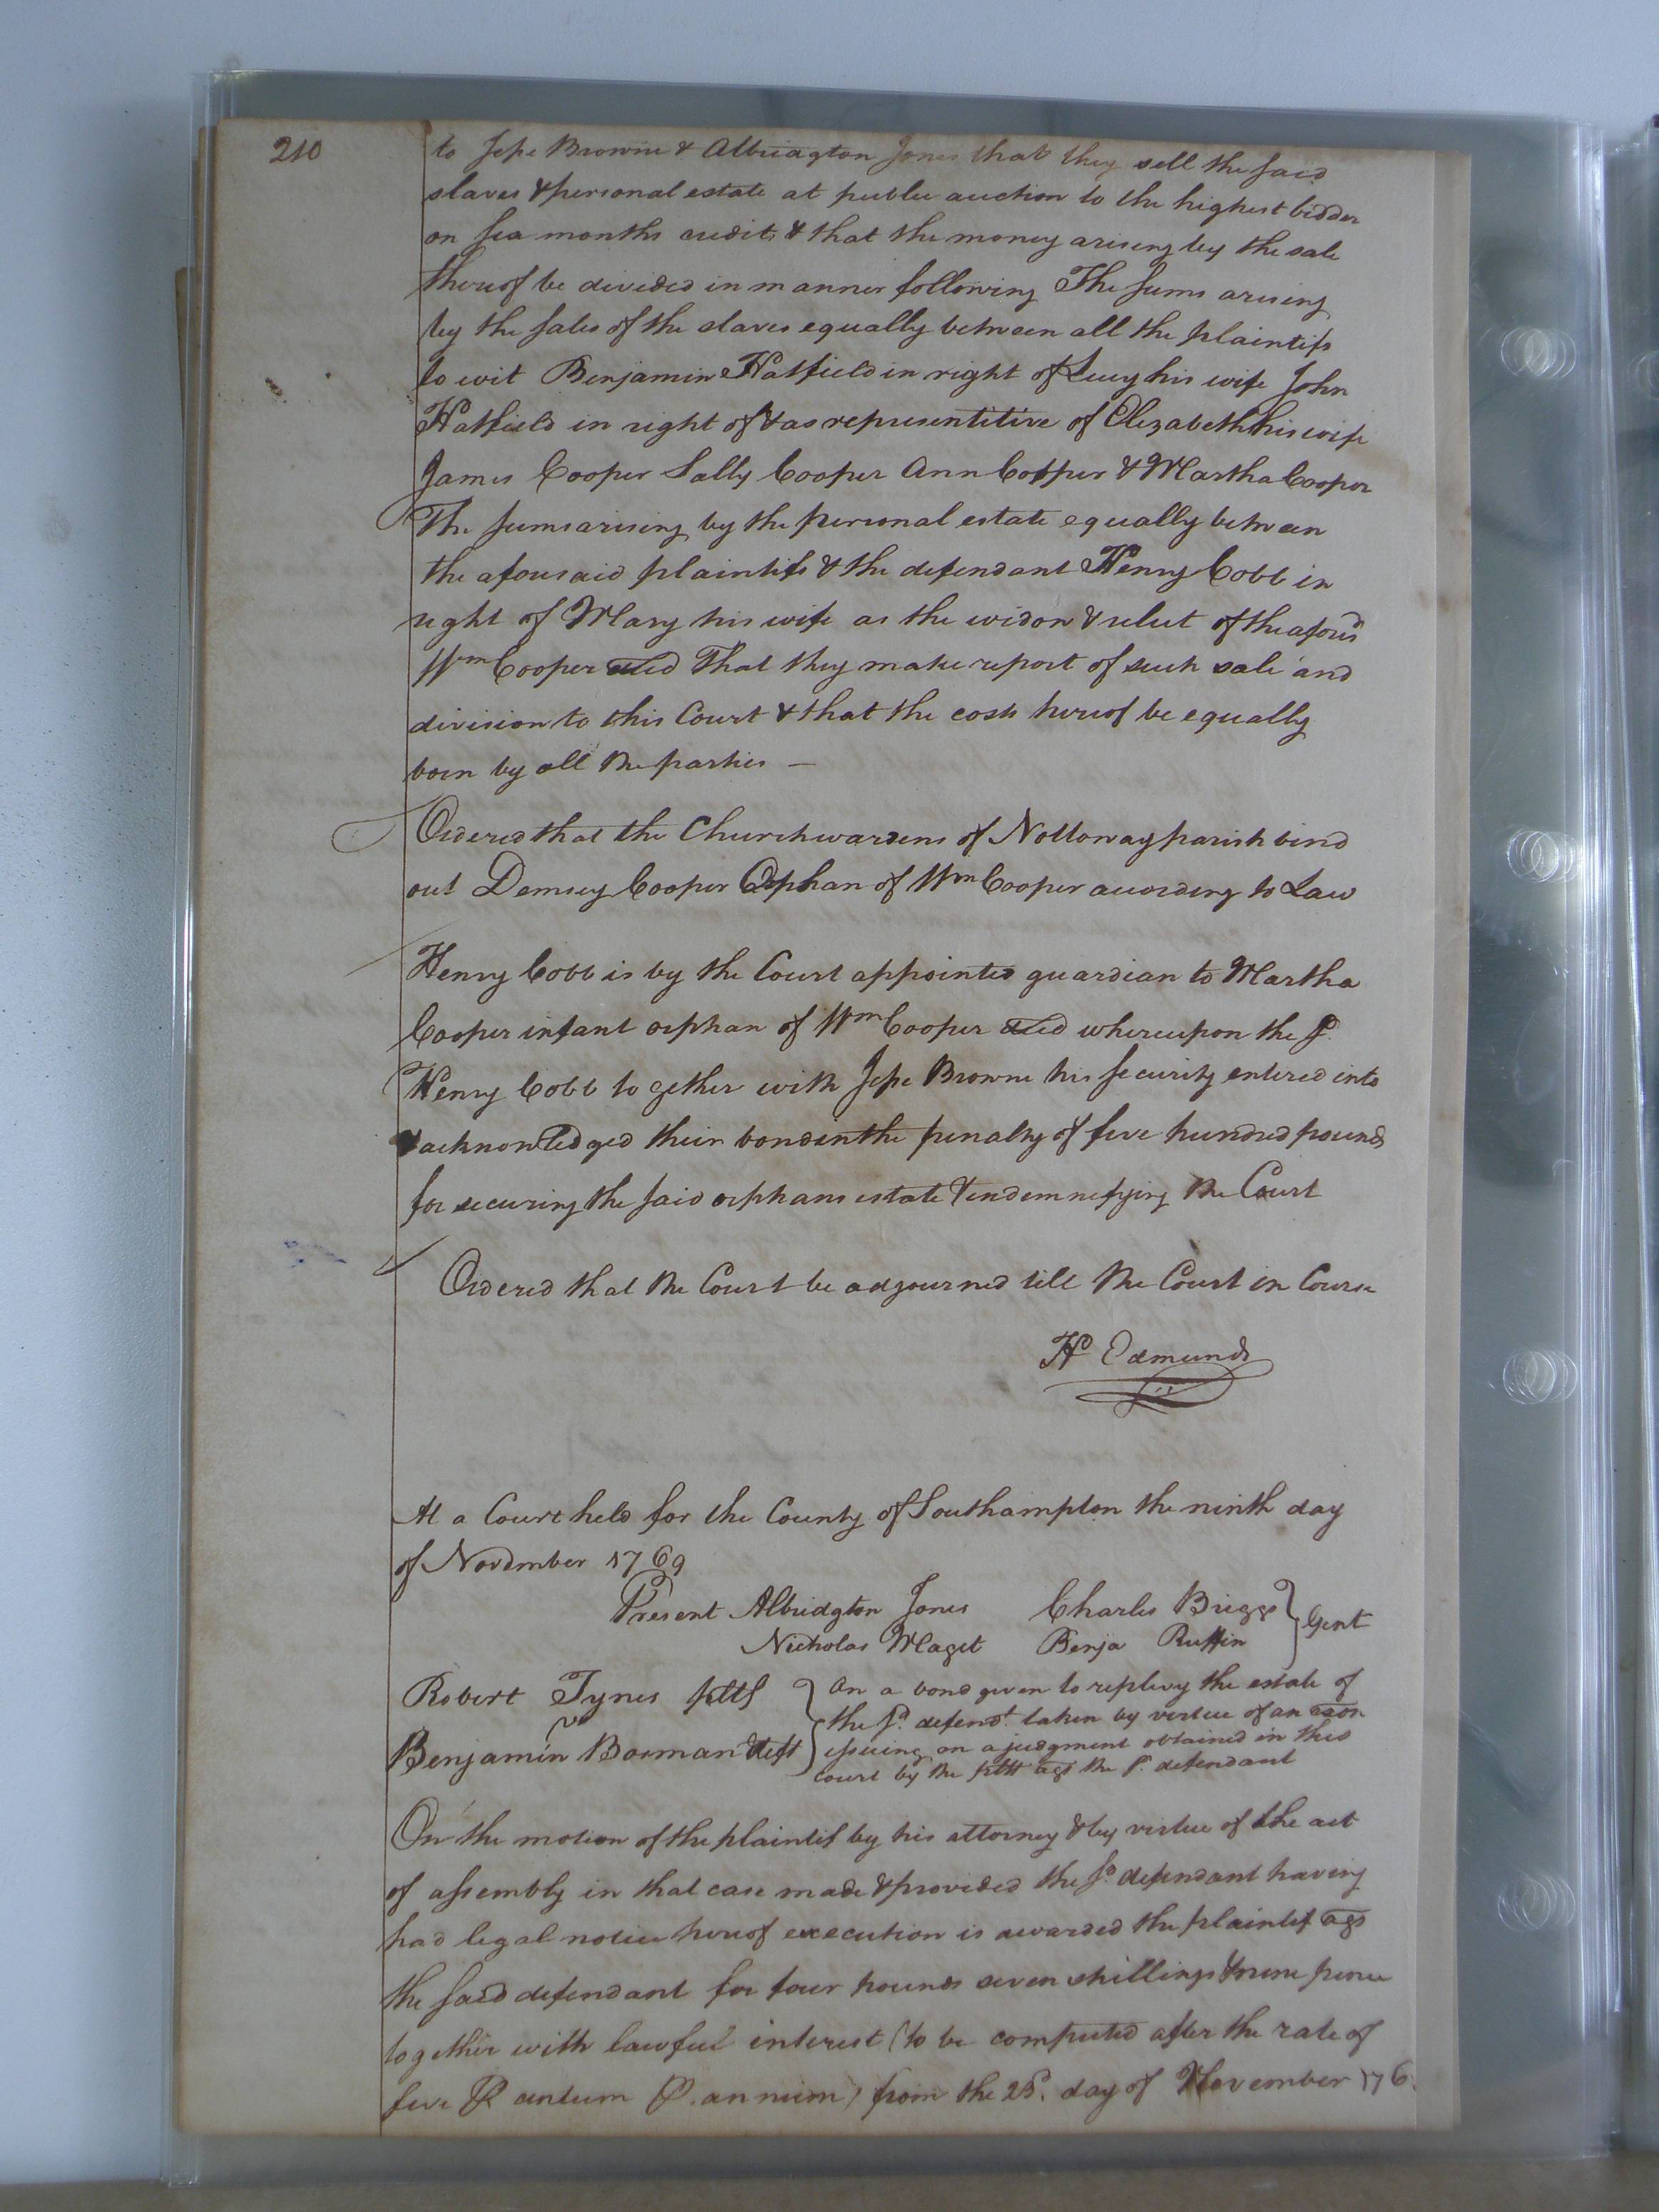 210
to Jesse Browne & Albridgton Jones that they sell the said
slaves & personal estate at public auction to the highest bidder
on six months credit & that the money arising by the sale
thereof be divided in manner following The sums arising
by the sales of the slaves equally between all the plaintifs
to wit Benjamin Hatfield in right of Lucy his wife John
Hatfield in right of & as representitive of Elizabeth his wife
James Cooper Sally Cooper Ann Cooper & Martha Cooper
The sums arising by the personal estate equally between
the aforesaid plaintifs & the defendant Henry Cobb in
right of Mary his wife as the widow & relict of the aforsd
Wm Cooper decd That they make report of such sale and
division to this Court & that the costs hereof be equally
born by all the parties —
Ordered that the Churchwardens of Nottoway parish bind
out Demsey Cooper Orphan of Wm Cooper according to Law
Henry Cobb is by the Court appointed guardian to Martha
Cooper infant orphan of Wm Cooper decd whereupon the sd.
Henry Cobb together with Jesse Browne his security entered into
& acknowledged their bond in the penalty of five hundred pounds
for securing the said orphans estate & indemnifying the Court
Ordered that the Court be adjourned till the Court in Course
H Edmunds
At a Court held for the County of Southampton the ninth day
of November 1769
Present Albridgton Jones Charles Briggs } Gent
Nicholas Maget Benja Ruffin
Robert Tynes pltf } On a bond given to replevy the estate of
vs the sd. defendt. taken by vertue of an exon
Benjamin Bowman deft issuing on a judgment obtained in this
court by the pltf ags the sd. defendant
On the motion of the plaintif by his attorney & by virtue of the act
of assembly in that case made & provided the sd. defendant having
had legal notice hereof execution is awarded the plaintif ags
the said defendant for four pounds seven shillings & nine pence
together with lawful interest (to be computed after the rate of
five P centum P. annum) from the 25. day of November 176